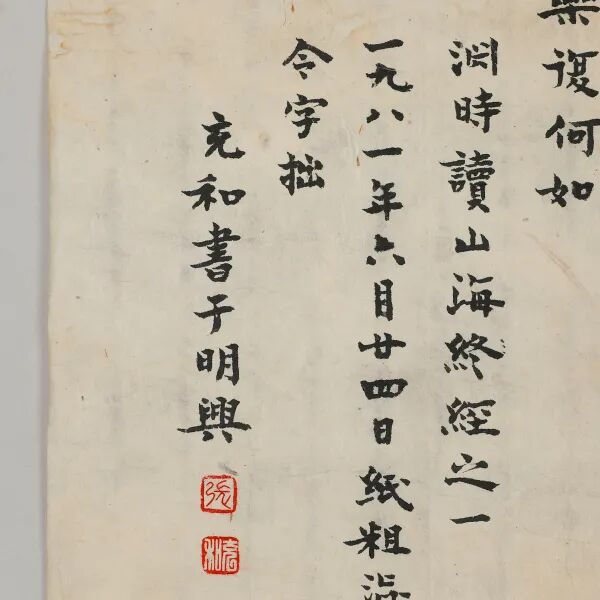 樂復何如
渊時讀山海終經之一
一九八一年六月廿四日紙粗
令字拙
充和書于明興
張
充和